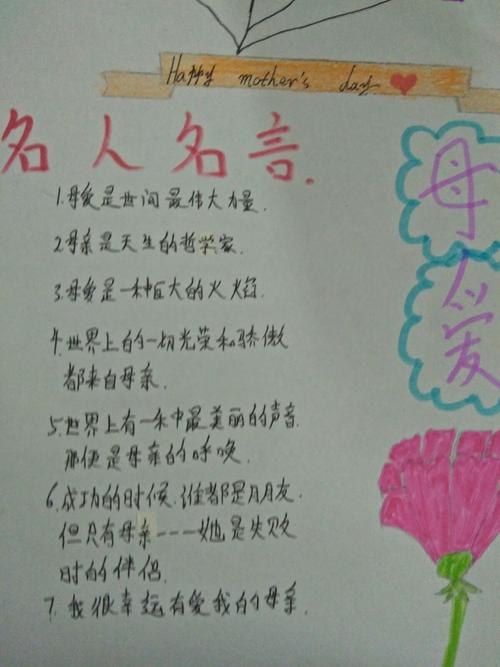 Happy mother's day
名人名言.
母爱
1.母愛是世间最伟大力量.
2.母亲是天生的哲学家.
3.母愛是一种巨大的火焰.
4.世界上的一切光荣和骄傲
都来自母亲.
5.世界上有一种最美丽的声音.
那便是母亲的呼唤.
6.成功的时候.谁都是朋友.
但只有母亲----她是失败
时的伴侣.
7.我很幸运有愛我的母亲.